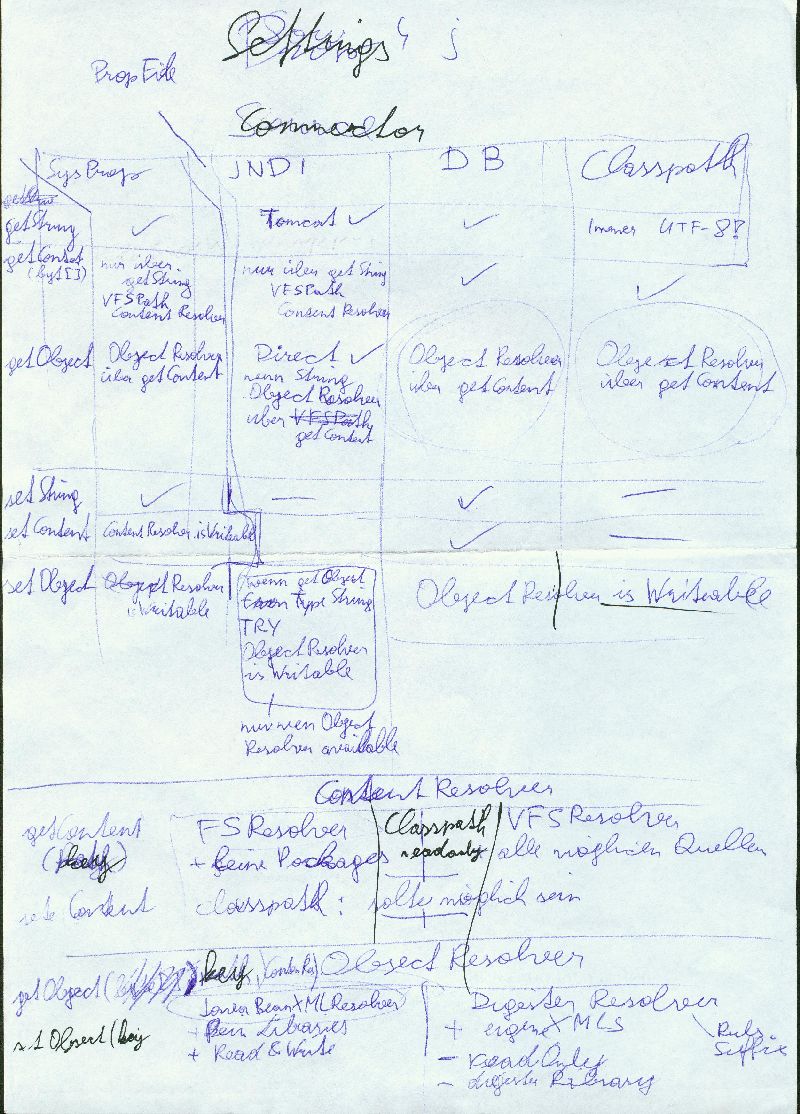 Settings 4 j
PropFile
Connector
SysProp JNDI DB Classpath
getString ✓ Tomcat ✓ ✓ Immer UTF-8?
getContent
(byt[])
nur über
getString
VFSPath
Content Resolver
nur über getString
VFSPath
Content Resolver
✓
✓
getObject
Object Resolver
über getContent
Direct ✓
wenn String
Object Resolver
über VFSPath
getContent
Object Resolver
über getContent
Object Resolver
über getContent
set String ✓ — ✓ —
set Content Content Resolver isWriteable ✓ —
set Object
Object Resolver
isWritable
wenn get Object
Type String
TRY
Object Resolver
is Writable
nur wen Object
Resolver available
Object Resolver is Writeable
Content Resolver
getContent
(key)
FS Resolver
+ keine Packages
Classpath
readonly
VFS Resolver
alle möglichen Quellen
Content
classpath: sollte möglich sein
Object Resolver
getObject( key,
Java BeanXMLResolver
+ kein Libraries
+ Read & Write
set Object (key
Digester Resolver
+ eigene XMLS
- Read Only
- digester Library
Suffix